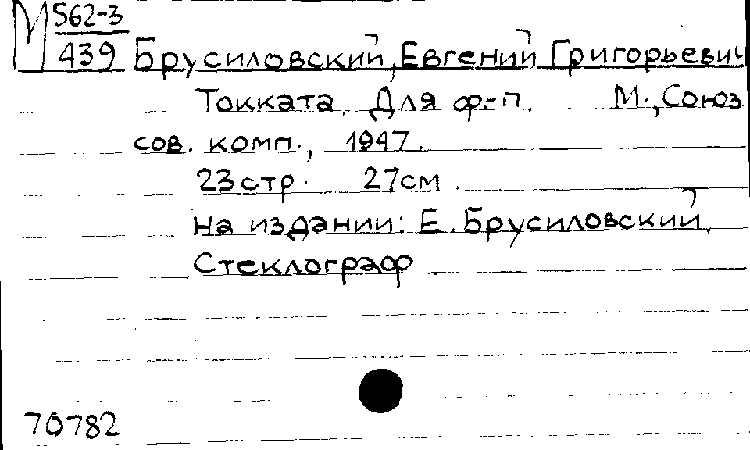 М 562-3
439 Брусиловский, Евгений Григорьевич
Токката. Для ф-п. М., Союз
сов. комп., 1947.
23 стр. 27 см.
На издании: Е. Брусиловский.
Стеклограф
70782